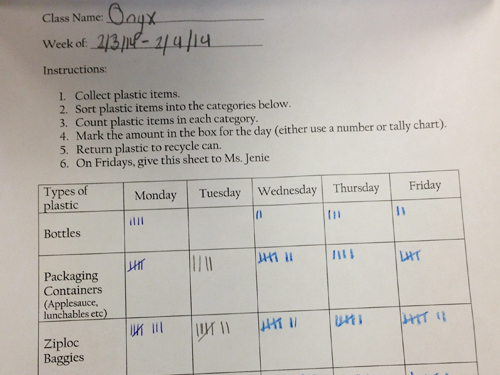 Class Name: Onyx
Week of: 2/3/14 - 2/4/14
Instructions:
1. Collect plastic items.
2. Sort plastic items into the categories below.
3. Count plastic items in each category.
4. Mark the amount in the box for the day (either use a number or tally chart).
5. Return plastic to recycle can.
6. On Fridays, give this sheet to Ms. Jenie
Types of plastic Monday Tuesday Wednesday Thursday Friday
Bottles
Packaging
Containers
(Applesauce,
lunchables etc)
Ziploc
Baggies